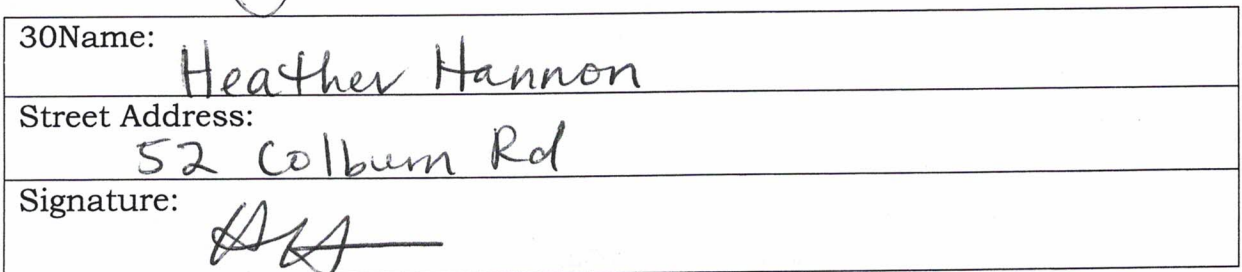 30Name:
Heather Hannon
Street Address:
52 Colburn Rd
Signature: